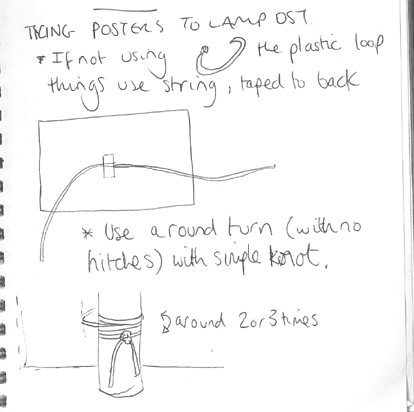 TYING POSTERS TO LAMP OST.
* If not using the plastic loop
things use string, taped to back
* Use a round turn (with no
hitches) with simple knot.
around 2 or 3 times